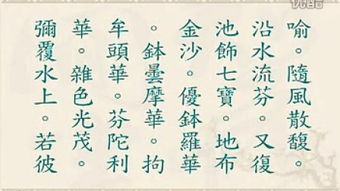 喻。隨風散馥。
沿水流芬。又復
池飾七寶。地布
金沙。優鉢羅華
。鉢曇摩華。拘
牟頭華。芬陀利
華。雜色光茂。
彌覆水上。若彼